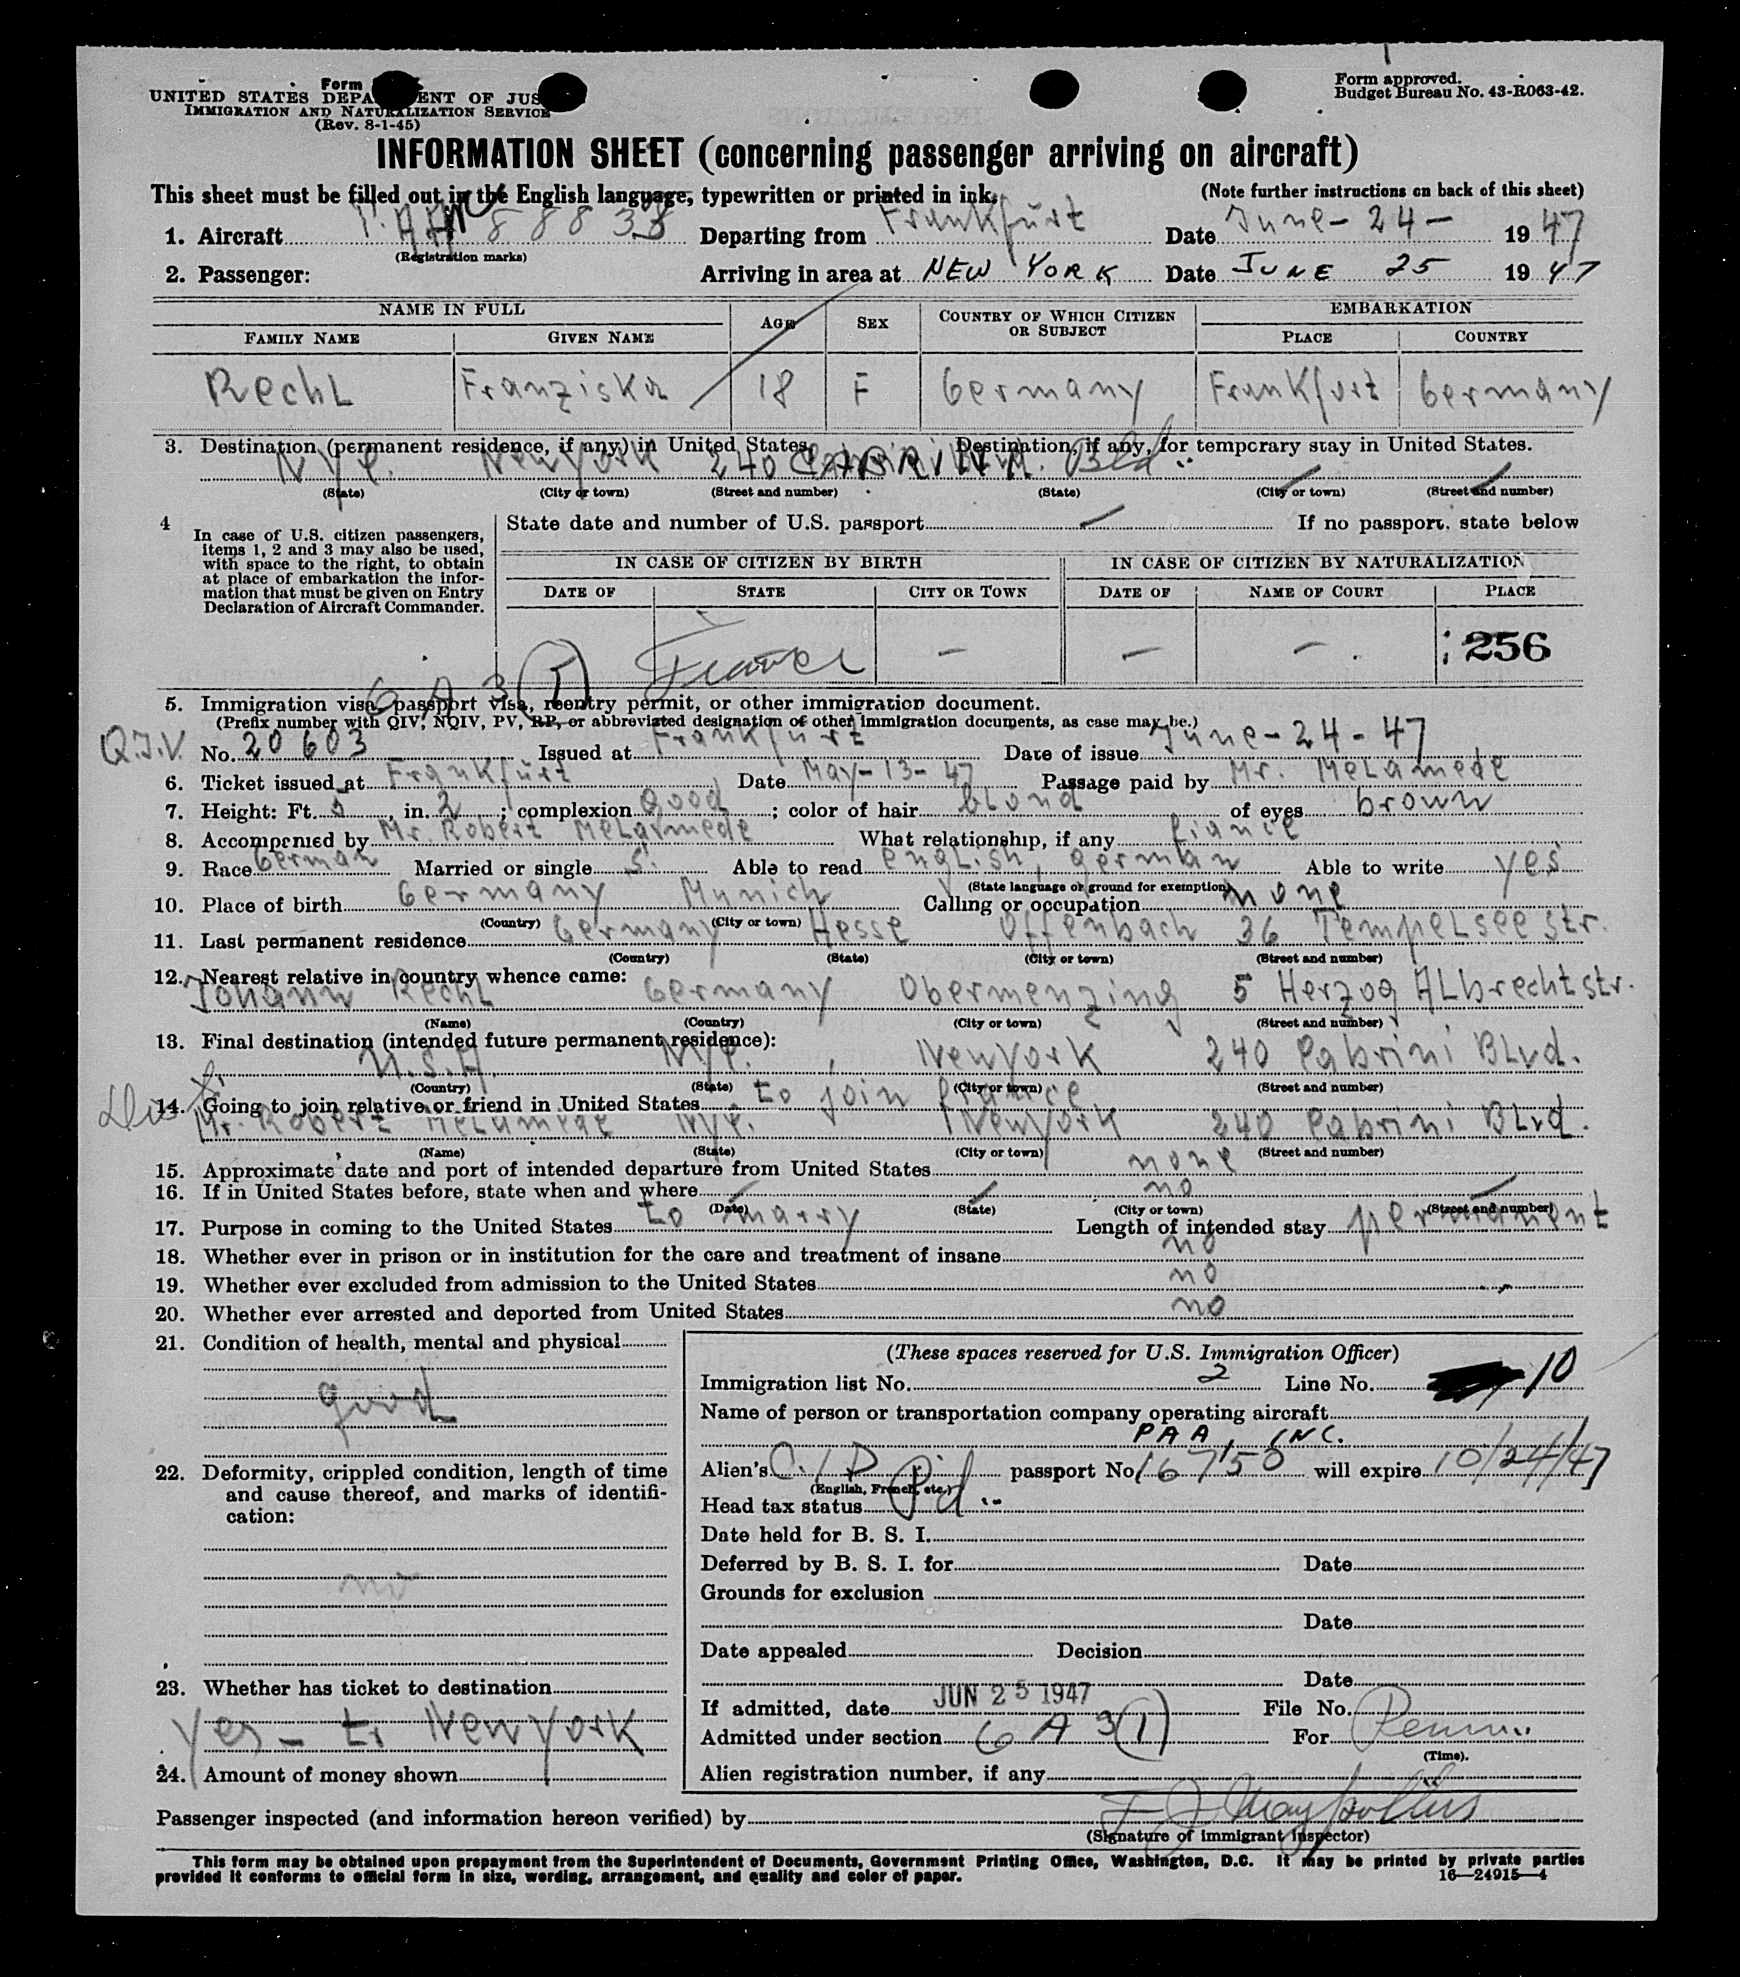 Form
UNITED STATES DEPA ENT OF JUS
IMMIGRATION AND NATURALIZATION SERVICE
(Rev. 8-1-45)
Form approved.
Budget Bureau No. 43-R063-42.
INFORMATION SHEET (concerning passenger arriving on aircraft)
This sheet must be filled out in the English language, typewritten or printed in ink.
(Note further instructions on back of this sheet)
1. Aircraft 88838 Departing from Frankfurt Date June-24- 1947
(Registration marks)
2. Passenger: Arriving in area at NEW YORK Date JUNE 25 1947
NAME IN FULL AGE SEX COUNTRY OF WHICH CITIZEN OR SUBJECT EMBARKATION
FAMILY NAME GIVEN NAME PLACE COUNTRY
Rechl Franziska 18 F Germany Frankfurt Germany
3. Destination (permanent residence, if any) in United States. Destination, if any, for temporary stay in United States.
N.Y. New York 240 CABRINI Bld.
(State) (City or town) (Street and number) (State) (City or town) (Street and number)
4 In case of U.S. citizen passengers, items 1, 2 and 3 may also be used, with space to the right, to obtain at place of embarkation the information that must be given on Entry Declaration of Aircraft Commander.
State date and number of U.S. passport If no passport, state below
IN CASE OF CITIZEN BY BIRTH IN CASE OF CITIZEN BY NATURALIZATION
DATE OF STATE CITY OR TOWN DATE OF NAME OF COURT PLACE
- - - 256
6 A 3 (I)
5. Immigration visa, passport visa, reentry permit, or other immigration document.
(Prefix number with QIV, NQIV, PV, RP, or abbreviated designation of other immigration documents, as case may be.)
Q.I.V. No. 20603 Issued at Frankfurt Date of issue June-24-47
6. Ticket issued at Frankfurt Date May-13-47 Passage paid by Mr. Melamede
7. Height: Ft. 5, in. 2; complexion good; color of hair blond of eyes brown
8. Accompanied by Mr. Robert Melamede What relationship, if any fiance
9. Race German Married or single S. Able to read english, german Able to write yes
(State language or ground for exemption)
10. Place of birth Germany Munich Calling or occupation none
(Country) (City or town)
11. Last permanent residence Germany Hesse Offenbach 36 Tempelsee str.
(Country) (State) (City or town) (Street and number)
12. Nearest relative in country whence came:
Johann Rechl Germany Obermenzing 5 Herzog Albrechtstr.
(Name) (Country) (City or town) (Street and number)
13. Final destination (intended future permanent residence):
U.S.A. N.Y. , New York 240 Cabrini Blvd.
(Country) (State) (City or town) (Street and number)
14. Going to join relative or friend in United States to join fiance
Mr. Robert Melamede N.Y. New York 240 Cabrini Blvd.
(Name) (State) (City or town) (Street and number)
15. Approximate date and port of intended departure from United States none
16. If in United States before, state when and where no
(Date) (State) (City or town) (Street and number)
17. Purpose in coming to the United States to marry Length of intended stay permanent
18. Whether ever in prison or in institution for the care and treatment of insane no
19. Whether ever excluded from admission to the United States no
20. Whether ever arrested and deported from United States no
21. Condition of health, mental and physical
good
22. Deformity, crippled condition, length of time
and cause thereof, and marks of identifi-
cation:
no
23. Whether has ticket to destination
Yes - to New York
24. Amount of money shown
(These spaces reserved for U.S. Immigration Officer)
Immigration list No. 2 Line No. 10
Name of person or transportation company operating aircraft
PAA, INC.
Alien's passport No. 167150 will expire 10/24/47
(English, French, etc.)
Head tax status Pd.
Date held for B. S. I.
Deferred by B. S. I. for Date
Grounds for exclusion
Date
Date appealed Decision
Date
If admitted, date JUN 25 1947 File No.
Admitted under section 6 A 3(1) For
(Time).
Alien registration number, if any
Passenger inspected (and information hereon verified) by
(Signature of immigrant inspector)
This form may be obtained upon prepayment from the Superintendent of Documents, Government Printing Office, Washington, D.C. It may be printed by private parties
provided it conforms to official form in size, wording, arrangement, and quality and color of paper.
16—24915—4